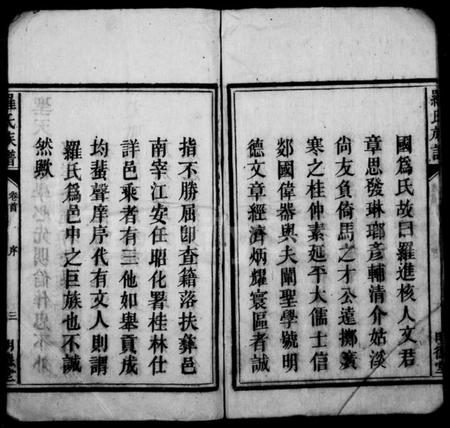 國爲氏故曰羅進核人文君
章思發琳瑯彦輔清介姑溪
尙友負倚馬之才公遠擲簧
寒之桂仲素延平大儒士信
郯國偉器與夫闡聖學號明
德文章經濟炳耀寰區者誠
指不勝屈卽查籍落扶彝邑
南宰江安任昭化署桂林仕
詳邑乘者有三他如舉貢成
均蜚聲庠序代有文人則謂
羅氏爲邑中之巨族也不誠
然歟
羅氏族譜
卷首
序
三